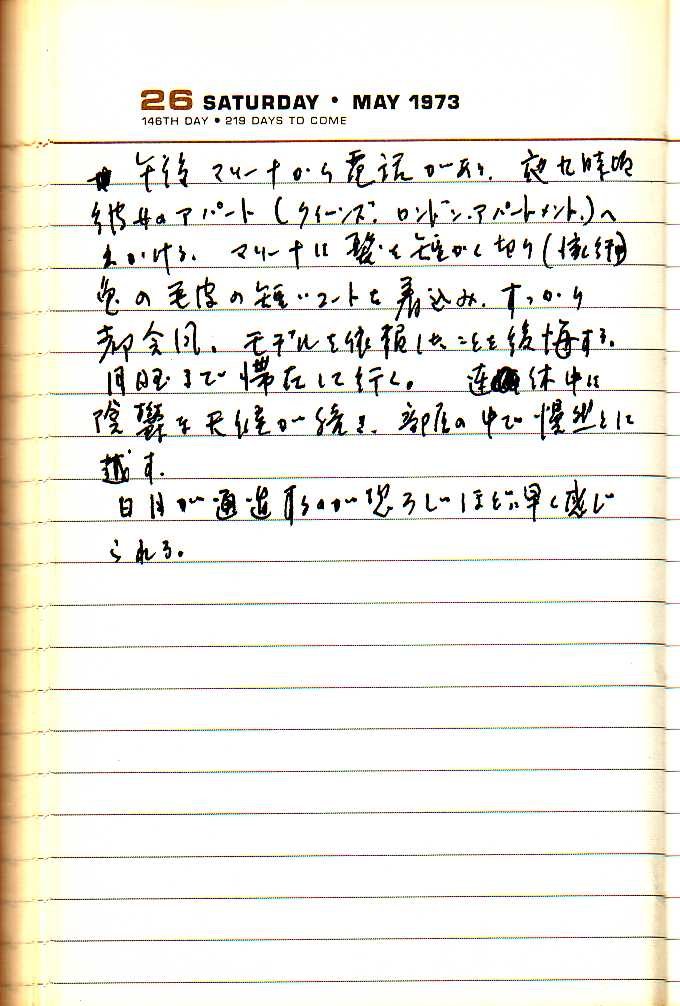 26 SATURDAY • MAY 1973
146TH DAY • 219 DAYS TO COME
午後 マリーナから電話がある. 夜九時頃
彼女のアパート (クイーンズ. ロンドン. アパートメント.) へ
出かける. マリーナは髪を短かく切り (
色の毛皮の短いコートを着込み. すっかり
都会風. モデルを依頼したことを後悔する.
月曜まで滞在して行く. 連休中は
陰鬱な天候が続き. 部屋の中で漫然とに
越す.
日月が通過するのが恐ろしいほどに早く感じ
られる.